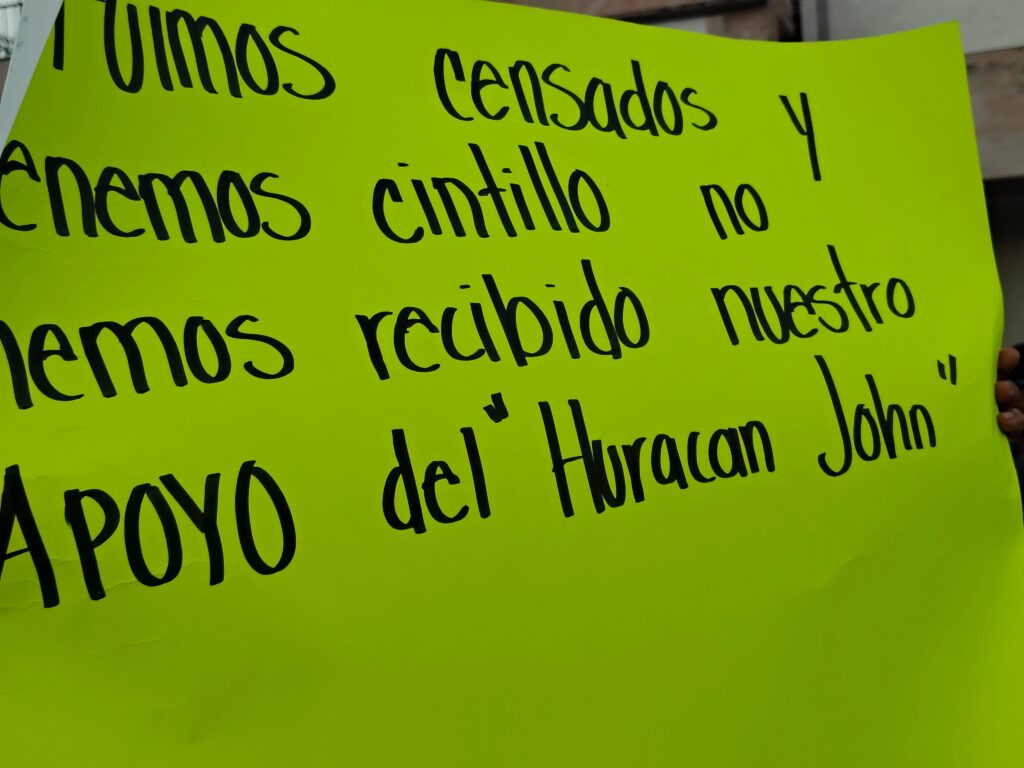 Fuimos censados y
enemos cintillo no
hemos recibido nuestro
APOYO del "Huracan John"